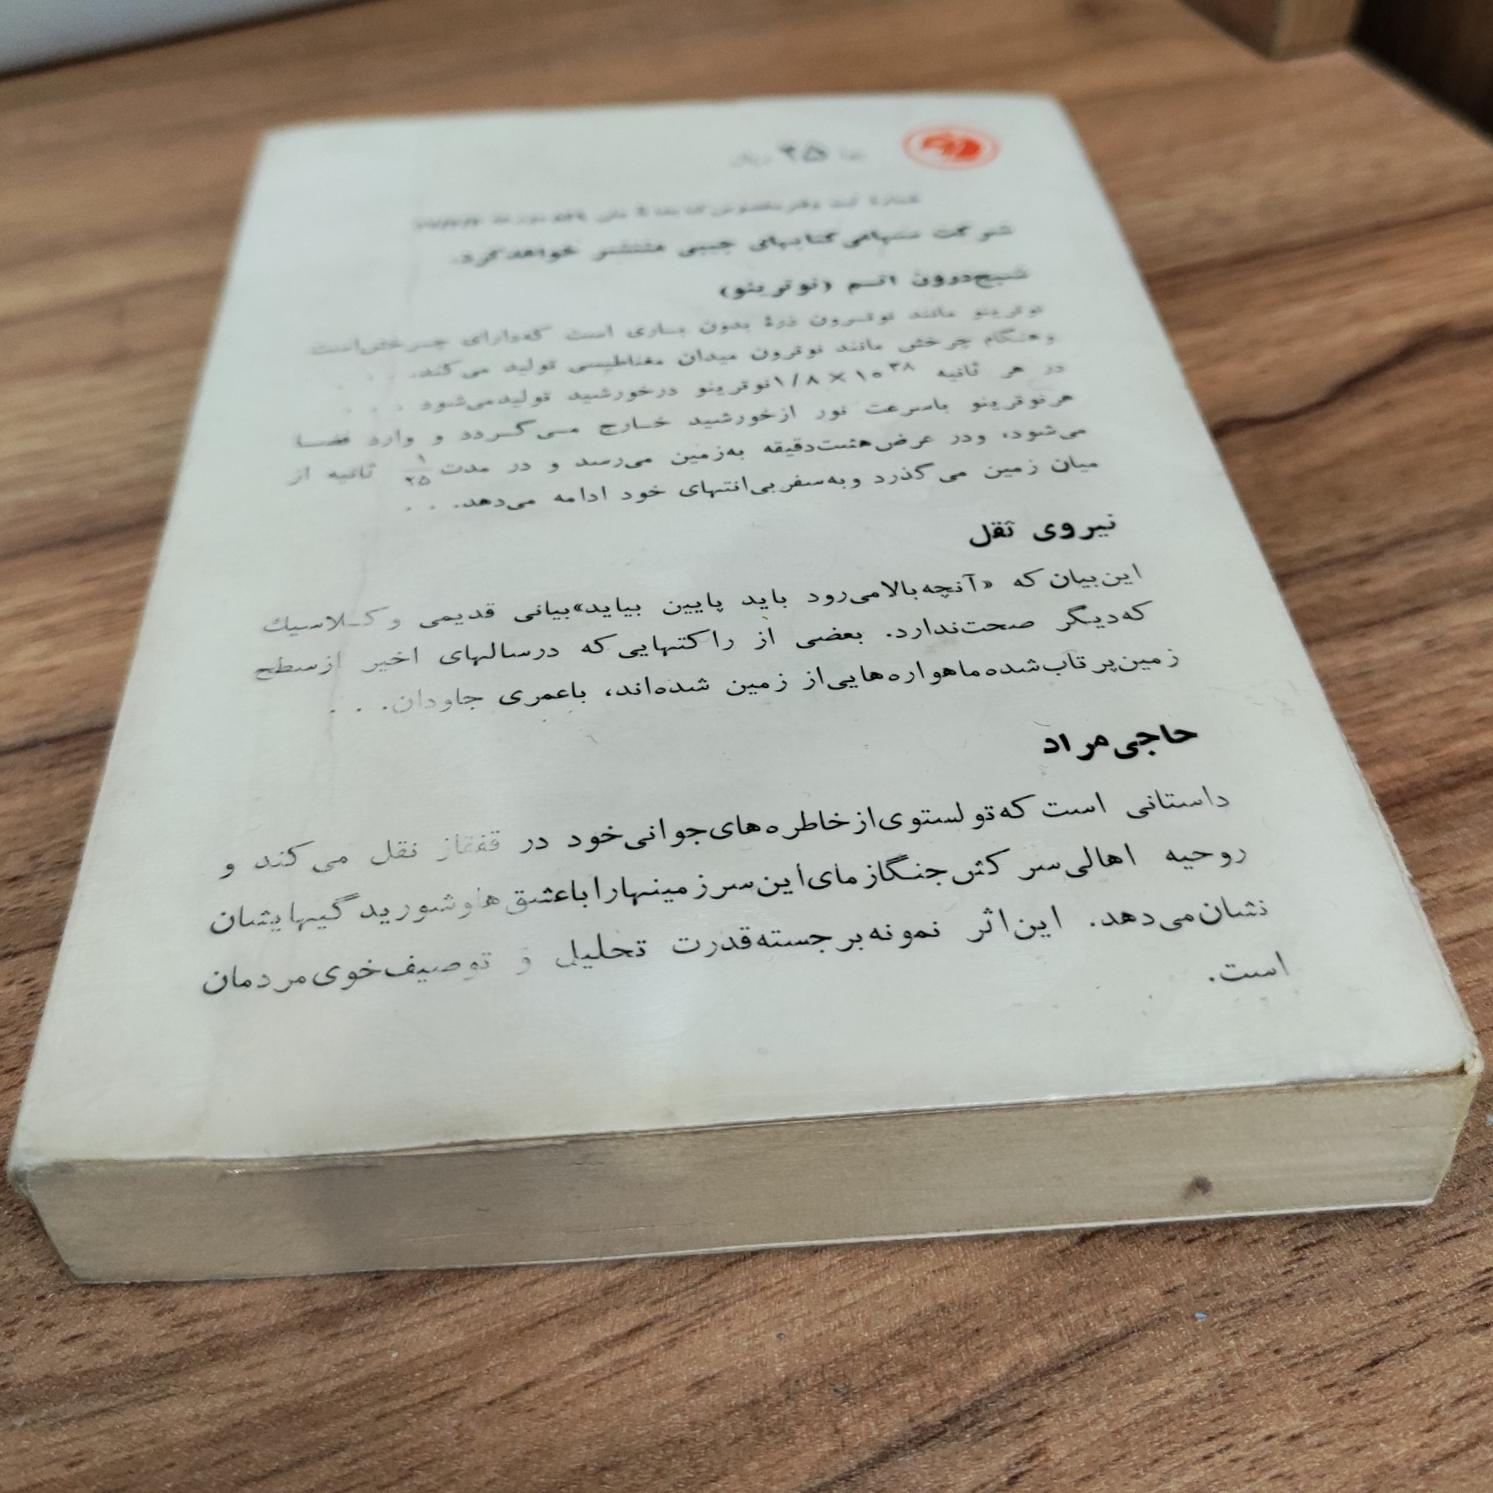 بها ۲۵ ریال
شرکت سهامی کتابهای جیبی منتشر خواهد کرد.
شبح درون اتم (نوترینو)
نوترینو مانند نوترون ذرهٔ بدون باری است که دارای چرخش است
و هنگام چرخش مانند نوترون میدان مغناطیسی تولید می‌کند. . . .
در هر ثانیه ۱/۸ × ۱۰۳۸ نوترینو در خورشید تولید می‌شود . . .
هر نوترینو با سرعت نور از خورشید خارج می‌گردد و وارد فضا
می‌شود، و در عرض هشت دقیقه به زمین می‌رسد و در مدت ۱/۲۵ ثانیه از
میان زمین می‌گذرد و به سفر بی‌انتهای خود ادامه می‌دهد. . .
نیروی ثقل
این بیان که «آنچه بالا می‌رود باید پایین بیاید» بیانی قدیمی و کلاسیك
که دیگر صحت ندارد. بعضی از راکتهایی که در سالهای اخیر از سطح
زمین پرتاب شده ماهواره‌هایی از زمین شده‌اند، با عمری جاودان. . .
حاجی مراد
داستانی است که تولستوی از خاطره‌های جوانی خود در قفقاز نقل می‌کند و
روحیه اهالی سرکش جنگ‌آزمای این سرزمینها را با عشق‌ها و شوریدگیهایشان
نشان می‌دهد. این اثر نمونه برجسته قدرت تحلیل و توصیف خوی مردمان
است.